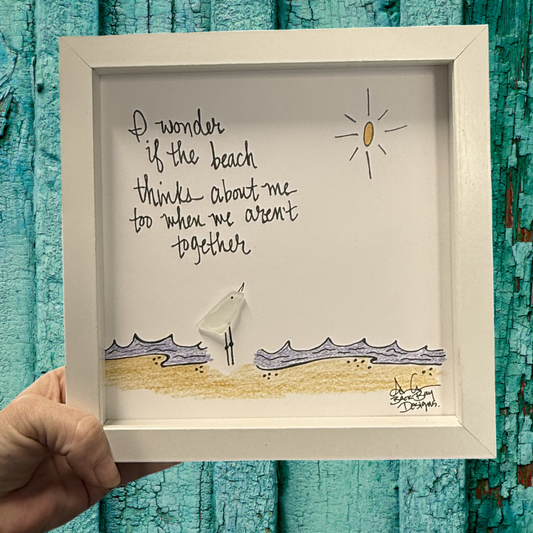 I wonder
if the beach
thinks about me
too when we aren't
together
Back Bay
Designs.